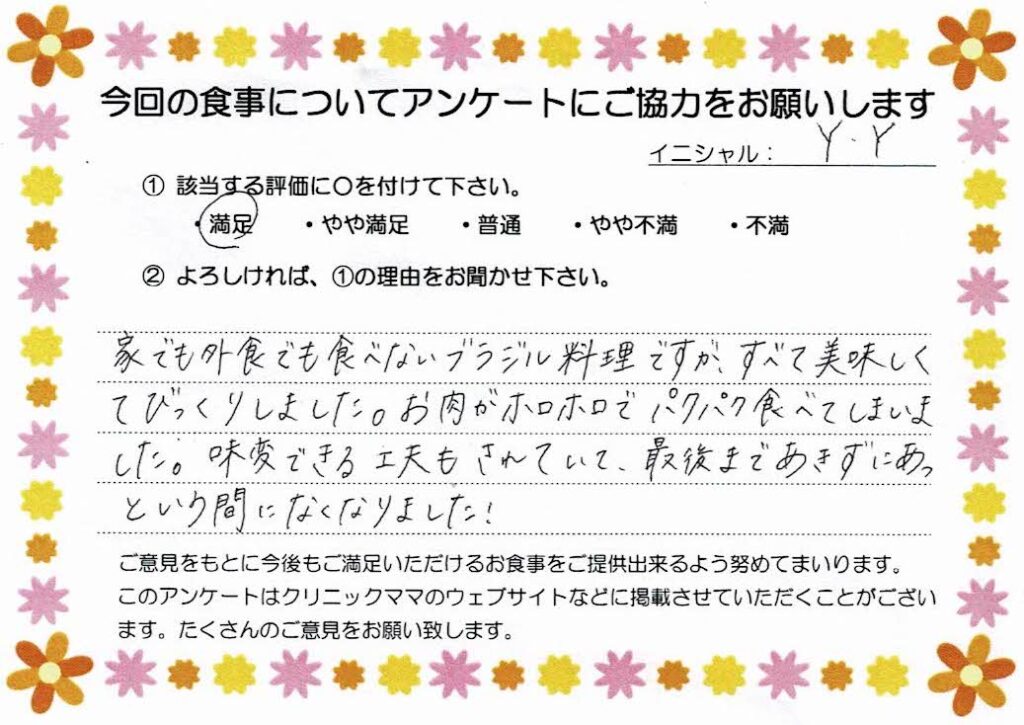 今回の食事についてアンケートにご協力をお願いします
イニシャル： Y.Y
① 該当する評価に○を付けて下さい。
・満足 ・やや満足 ・普通 ・やや不満 ・不満
② よろしければ、①の理由をお聞かせ下さい。
家でも外食でも食べないブラジル料理ですが、すべて美味しく
てびっくりしました。お肉がホロホロでパクパク食べてしまいま
した。味変できる工夫もされていて、最後まであきずにあっ
という間になくなりました!
ご意見をもとに今後もご満足いただけるお食事をご提供出来るよう努めてまいります。
このアンケートはクリニックママのウェブサイトなどに掲載させていただくことがござい
ます。たくさんのご意見をお願い致します。